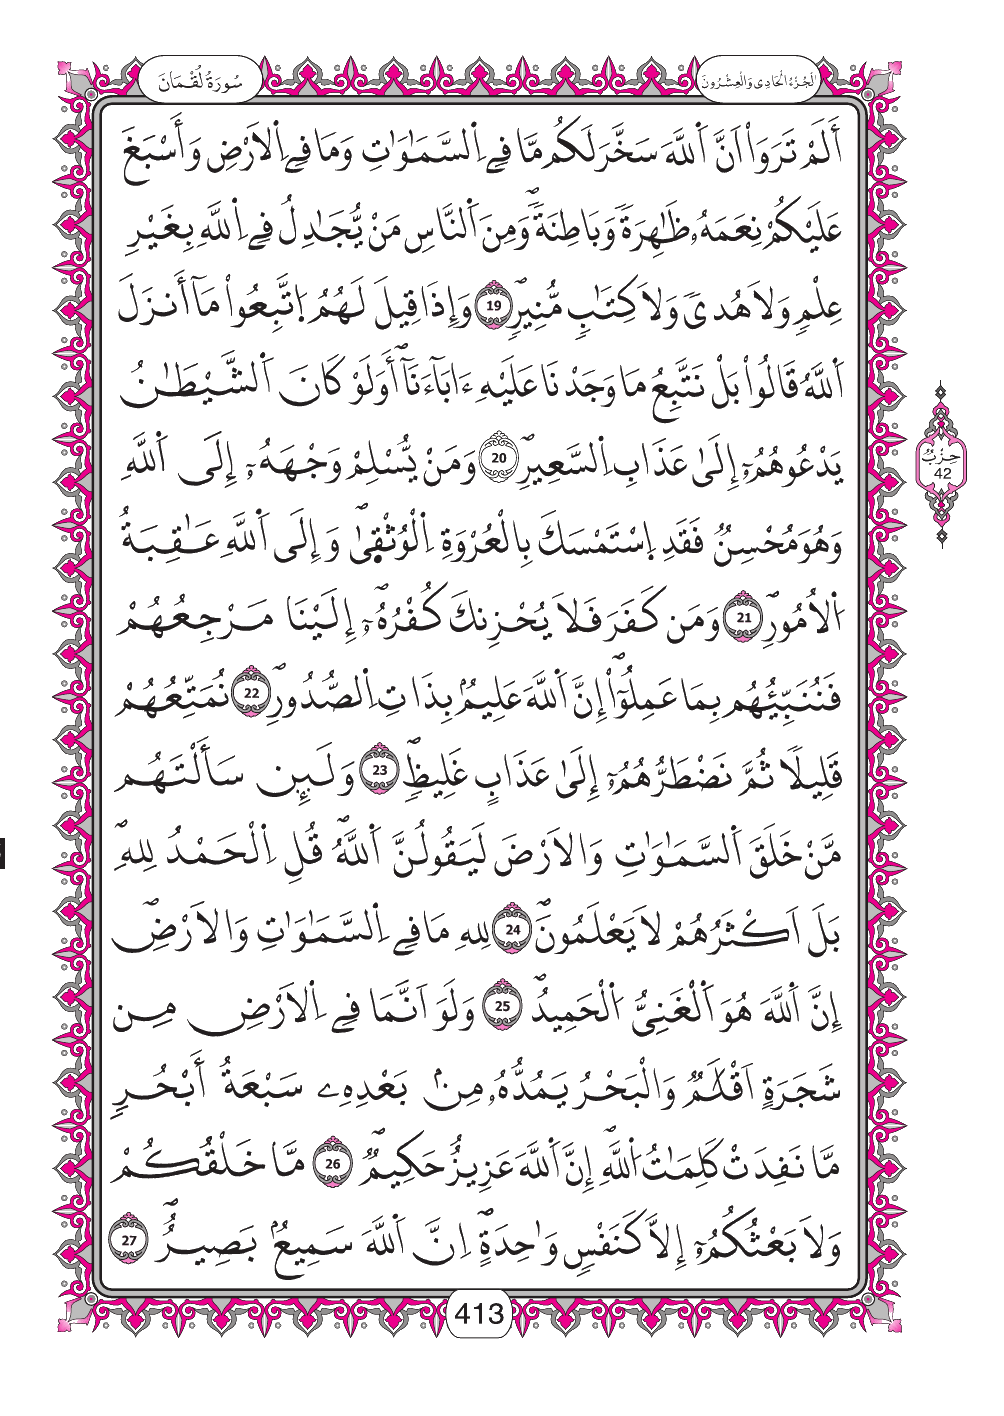 سُورَةُ لُقْمَانَ
الْجُزْءُ الْحَادِي وَالْعِشْرُونَ
أَلَمْ تَرَوَاْ اَنَّ اَ۬للَّهَ سَخَّرَ لَكُم مَّا فِے اِ۬لسَّمَٰوَٰتِ وَمَا فِے اِ۬لَارْضِ وَأَسْبَغَ
عَلَيْكُمْ نِعَمَهُۥ ظَٰهِرَةٗ وَبَاطِنَةٗۖ وَمِنَ اَ۬لنَّاسِ مَنْ يُّجَٰدِلُ فِے اِ۬للَّهِ بِغَيْرِ
عِلْمٖ وَلَا هُديٗ وَلَا كِتَٰبٖ مُّنِيرٖۖ 19 وَإِذَا قِيلَ لَهُمُ اُ۪تَّبِعُواْ مَآ أَنزَلَ
اَ۬للَّهُ قَالُواْ بَلْ نَتَّبِعُ مَا وَجَدْنَا عَلَيْهِ ءَابَآءَنَآۖ أَوَلَوْ كَانَ اَ۬لشَّيْطَٰنُ
يَدْعُوهُمُۥٓ إِلَىٰ عَذَابِ اِ۬لسَّعِيرِۖ 20 وَمَنْ يُّسْلِمْ وَجْهَهُۥٓ إِلَى اَ۬للَّهِ
وَهُوَ مُحْسِنٞ فَقَدِ اِ۪سْتَمْسَكَ بِالْعُرْوَةِ اِ۬لْوُثْق۪ىٰۖ وَإِلَى اَ۬للَّهِ عَٰقِبَةُ
اُ۬لُامُورِۖ 21 وَمَن كَفَرَ فَلَا يُحْزِنكَ كُفْرُهُۥٓۖ إِلَيْنَا مَرْجِعُهُمْ
فَنُنَبِّئُهُم بِمَا عَمِلُوٓاْۖ إِنَّ اَ۬للَّهَ عَلِيمُۢ بِذَاتِ اِ۬لصُّدُورِۖ 22 نُمَتِّعُهُمْ
قَلِيلٗا ثُمَّ نَضْطَرُّهُمُۥٓ إِلَىٰ عَذَابٍ غَلِيظٖۖ 23 وَلَئِن سَأَلْتَهُم
مَّنْ خَلَقَ اَ۬لسَّمَٰوَٰتِ وَالَارْضَ لَيَقُولُنَّ اَ۬للَّهُۖ قُلِ اِ۬لْحَمْدُ لِلهِۖ
بَلَ اَكْثَرُهُمْ لَا يَعْلَمُونَۖ 24 لِلهِ مَا فِے اِ۬لسَّمَٰوَٰتِ وَالَارْضِۖ
إِنَّ اَ۬للَّهَ هُوَ اَ۬لْغَنِيُّ اُ۬لْحَمِيدُۖ 25 وَلَوَ اَنَّمَا فِے اِ۬لَارْضِ مِن
شَجَرَةٍ اَقْلَٰمٞ وَالْبَحْرُ يَمُدُّهُۥ مِنۢ بَعْدِهِۦ سَبْعَةُ أَبْحُرٖ
مَّا نَفِدَتْ كَلِمَٰتُ اُ۬للَّهِۖ إِنَّ اَ۬للَّهَ عَزِيزٌ حَكِيمٞۖ 26 مَّا خَلْقُكُمْ
وَلَا بَعْثُكُمُۥٓ إِلَّا كَنَفْسٖ وَٰحِدَةٍۖ اِنَّ اَ۬للَّهَ سَمِيعُۢ بَصِيرٌۖ 27
حِزْبُ
42
413